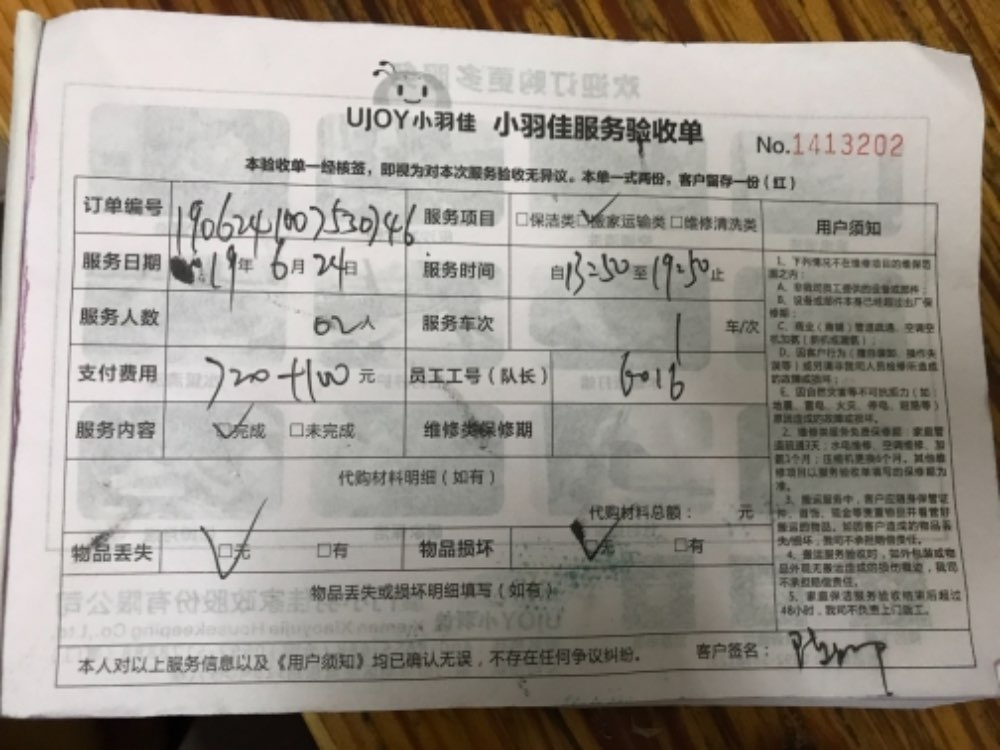 UJOY小羽佳 小羽佳服务验收单
No.1413202
本验收单一经核签，即视为对本次服务验收无异议。本单一式两份，客户留存一份（红）
订单编号 1906241007530746 服务项目 □保洁类 □搬家运输类 □维修清洗类
服务日期 19年6月24日 服务时间 自13:50至19:50止
服务人数 02人 服务车次 1 车/次
支付费用 720+100元 员工工号（队长） 6016
服务内容 □完成 □未完成 维修类保修期
代购材料明细（如有）
代购材料总额： 元
物品丢失 □无 □有 物品损坏 □无 □有
物品丢失或损坏明细填写（如有）
本人对以上服务信息以及《用户须知》均已确认无误，不存在任何争议纠纷。 客户签名：
用户须知
1、下列情况不在维修项目的维保范
围之内：
A、非我司员工提供的设备或部件；
B、设备或部件本身已经超过出厂保
修期；
C、商业（商铺）管道疏通、空调空
机加氨（新机或漏氨）；
D、因客户行为（擅自装卸、操作失
误等）或另请非我司人员检修所造成
的故障或损坏；
E、因自然灾害等不可抗能力（如：
地震、雷电、火灾、停电、短路等）
原因造成的故障或损坏。
2、维修类服务免费保修期：家庭管
道疏通3天；水电维修、空调维修、加
氨1个月；压缩机更换6个月。其他维
修项目以服务验收单填写的保修期为
准。
3、搬运服务中，客户应随身保管证
件、首饰、现金等贵重物品并看管好
搬运的物品。如因客户造成的物品丢
失/损坏，我司不承担赔偿责任。
4、搬运服务验收时，如外包装或物
品外观无搬运造成的损伤痕迹，我司
不承担赔偿责任。
5、家庭保洁服务验收结束后超过
48小时，我司不负责上门返工。